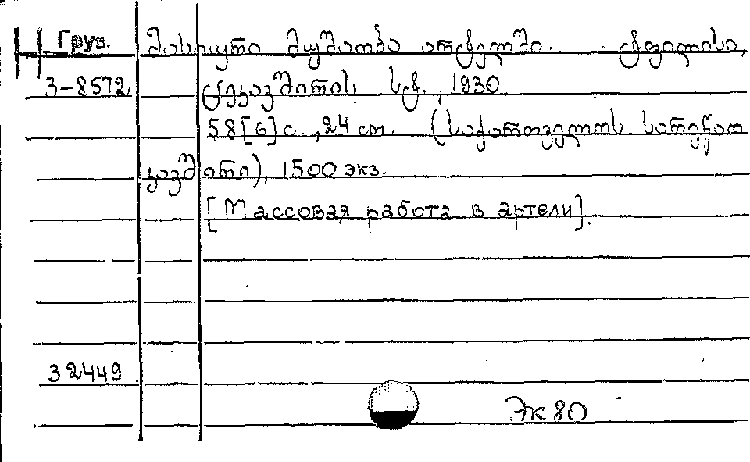 Груз. მასიური მუშაობა არტელში. ტფილისი,
3-8572 სტ., 1930.
58[6] с., 24 см. (საქართველოს სარეწაო
კავშირი), 1500 экз.
[Массовая работа в артели].
32449
Эк 80